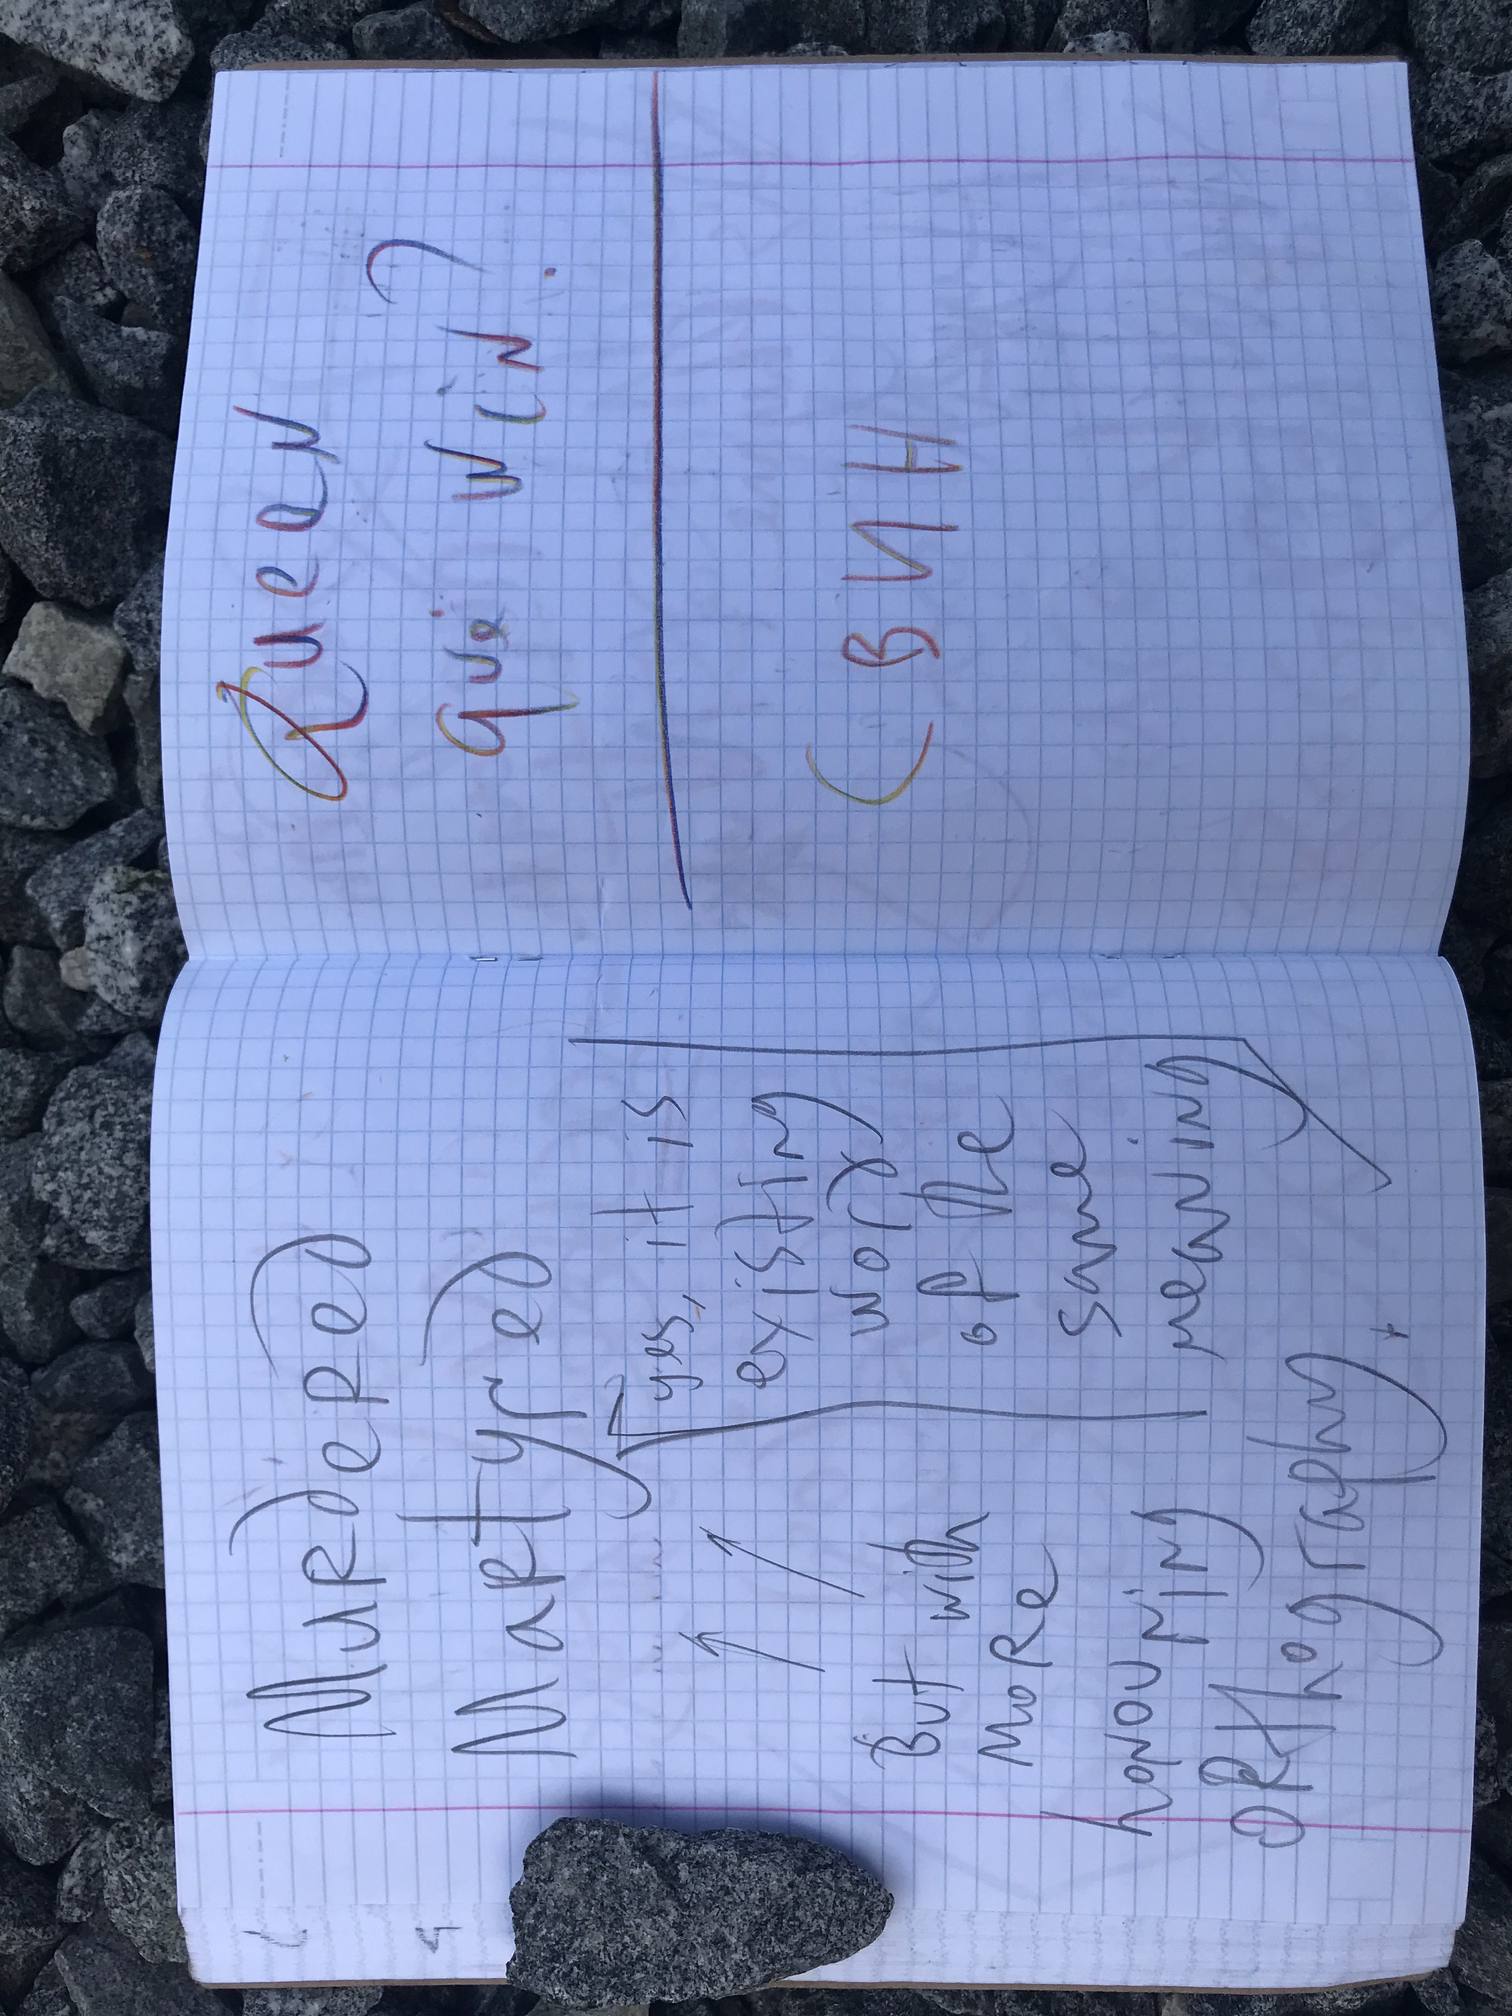 MuRDeReD
MaRtyreD
yes, it is
existing
worD
of the
same
meaning
But with
MoRe
honouring
ORthography
QueeN
que WiN?
СВИН